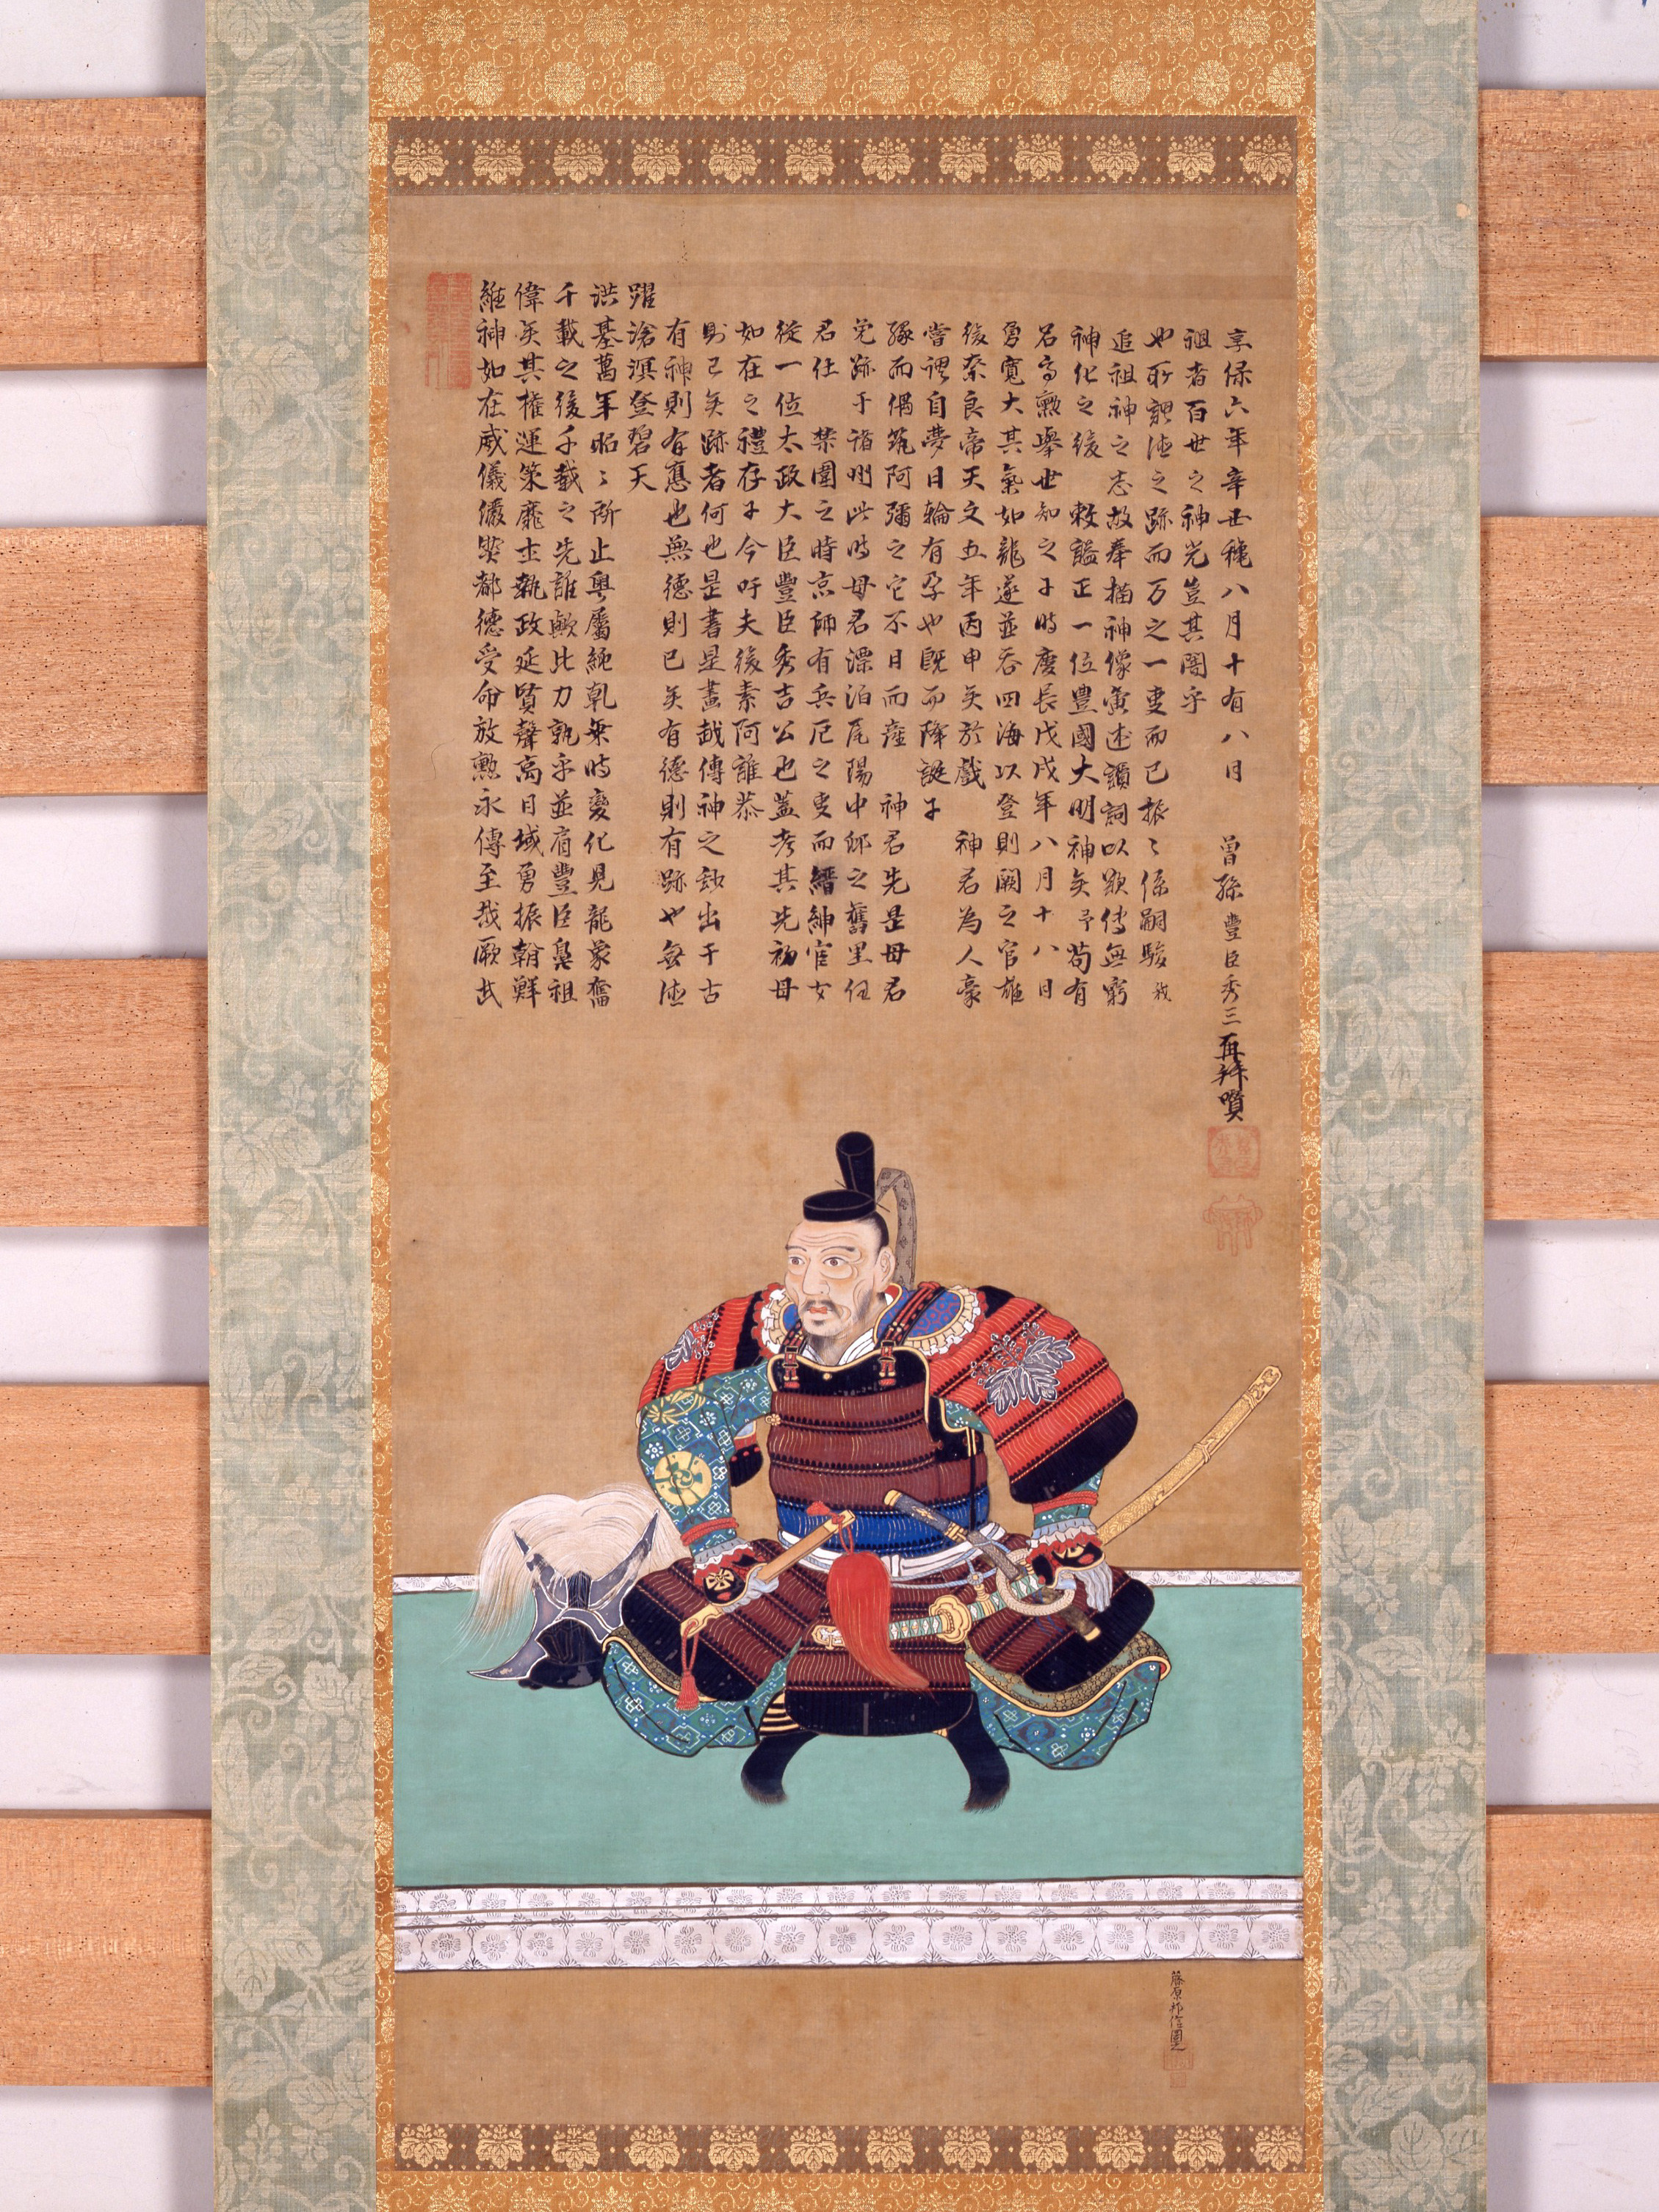 維神如在威儀儼都德受命放勲永傳至哉厥武
偉矣其權運策靡士執政延賢聲高日域勇振朝鮮
千載之後千載之先誰歟比力孰乎並肩豐臣鼻祖
洪基萬年昭々所止奥屬純乾乗時變化見龍象奮
躍滄溟登碧天
有神則有應也無德則已矣有德則有跡也無德
則已矣跡者何也是書是畫越傳神之妙出千古
如在之禮存于今吁夫後素阿誰恭
從一位太政大臣豐臣秀吉公也蓋考其先初母
君仕 禁園之時京師有兵厄之変而縉紳宦女
免跡于諸州此時母君漂泊尾陽中邨之舊里任
緣而偶筑阿彌之宅不日而産 神君先是母君
嘗謂自夢日輪有孕也既而降誕于
後奈良帝天文五年丙申矣於戲 神君為人豪
勇寛大其氣如龍遂並吞四海以登則闕之官雄
名高勲擧世知之于時慶長戊戌年八月十八日
神化之後 敕謚正一位豐國大明神矣予苟有
追祖神之志故奉描神像寅述讃詞以欲傳無窮
也所謂德之跡而万之一変而已振々係嗣駿哉
祖者百世之神光豈其闇乎
享保六年辛丑龝八月十有八日 曾孫豐臣秀三再拜讃
藤原邦信圖之